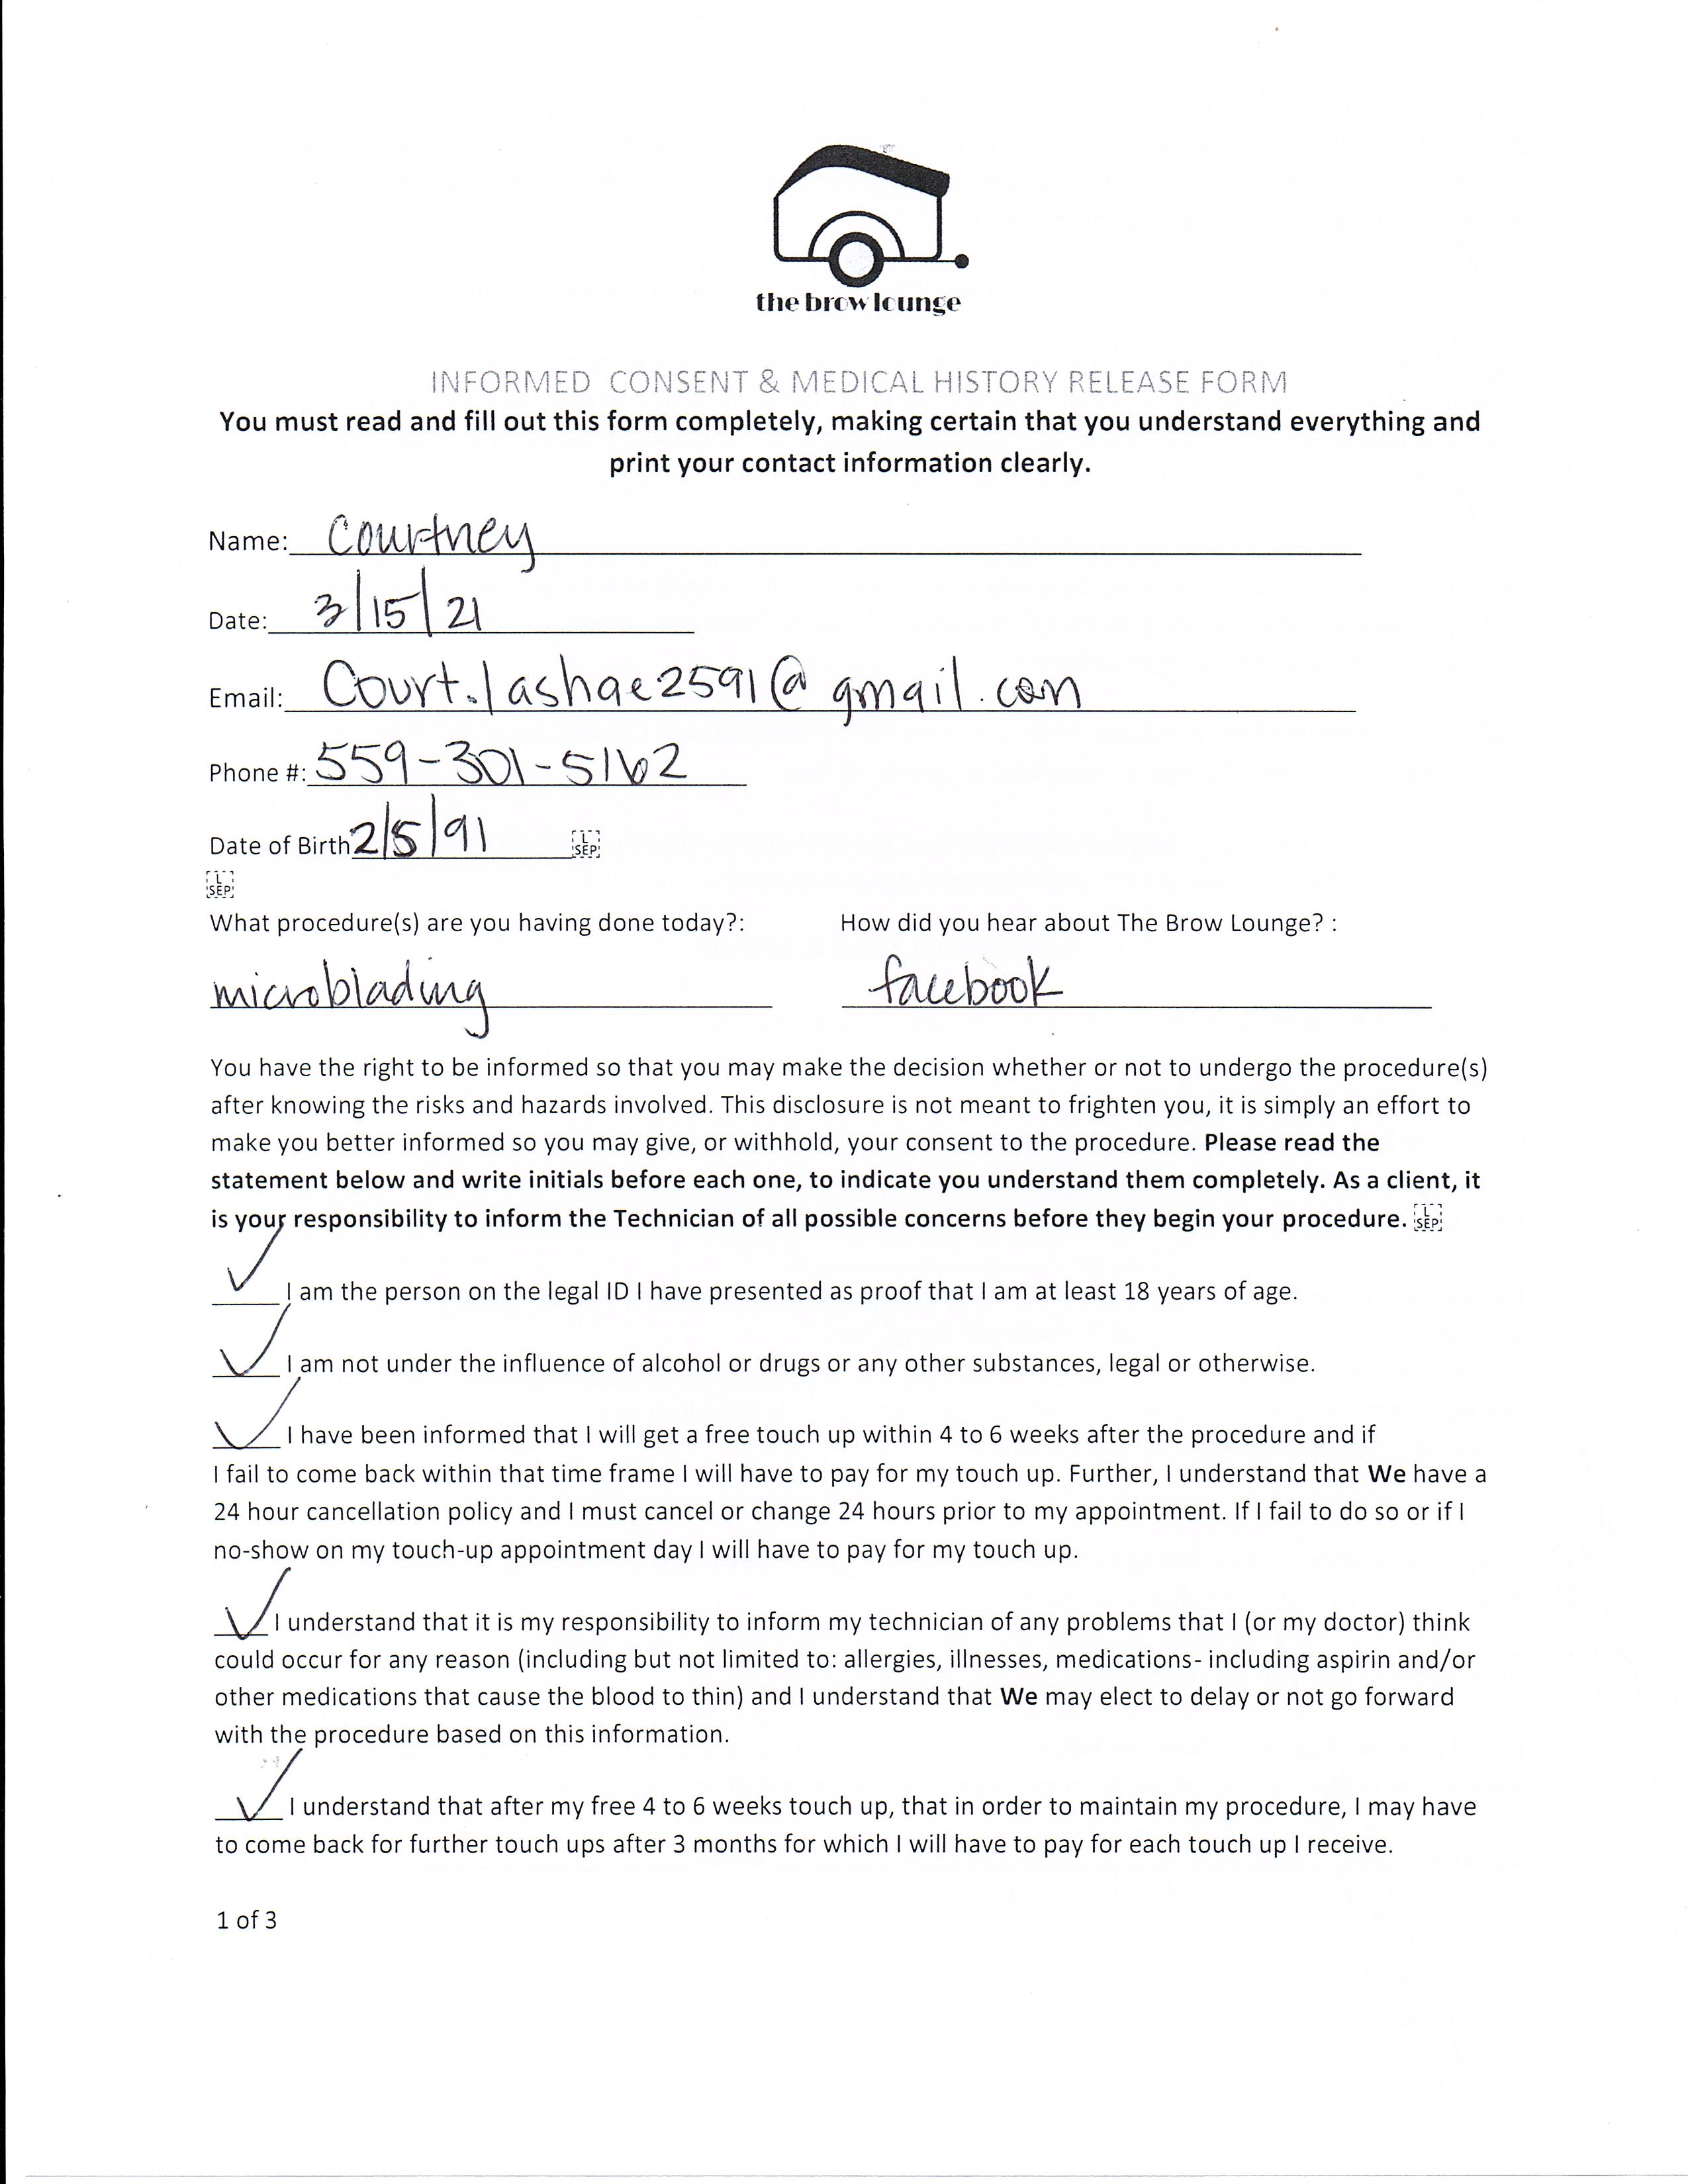 the brow lounge
INFORMED CONSENT & MEDICAL HISTORY RELEASE FORM
You must read and fill out this form completely, making certain that you understand everything and
print your contact information clearly.
Name: Courtney
Date: 3/15/21
Email: Court.lashae2591@gmail.com
Phone #: 559-301-5162
Date of Birth 2/5/91 L SEP
L SEP
What procedure(s) are you having done today?: How did you hear about The Brow Lounge? :
microblading facebook
You have the right to be informed so that you may make the decision whether or not to undergo the procedure(s)
after knowing the risks and hazards involved. This disclosure is not meant to frighten you, it is simply an effort to
make you better informed so you may give, or withhold, your consent to the procedure. Please read the
statement below and write initials before each one, to indicate you understand them completely. As a client, it
is your responsibility to inform the Technician of all possible concerns before they begin your procedure. L SEP
I am the person on the legal ID I have presented as proof that I am at least 18 years of age.
I am not under the influence of alcohol or drugs or any other substances, legal or otherwise.
I have been informed that I will get a free touch up within 4 to 6 weeks after the procedure and if
I fail to come back within that time frame I will have to pay for my touch up. Further, I understand that We have a
24 hour cancellation policy and I must cancel or change 24 hours prior to my appointment. If I fail to do so or if I
no-show on my touch-up appointment day I will have to pay for my touch up.
I understand that it is my responsibility to inform my technician of any problems that I (or my doctor) think
could occur for any reason (including but not limited to: allergies, illnesses, medications- including aspirin and/or
other medications that cause the blood to thin) and I understand that We may elect to delay or not go forward
with the procedure based on this information.
I understand that after my free 4 to 6 weeks touch up, that in order to maintain my procedure, I may have
to come back for further touch ups after 3 months for which I will have to pay for each touch up I receive.
1 of 3